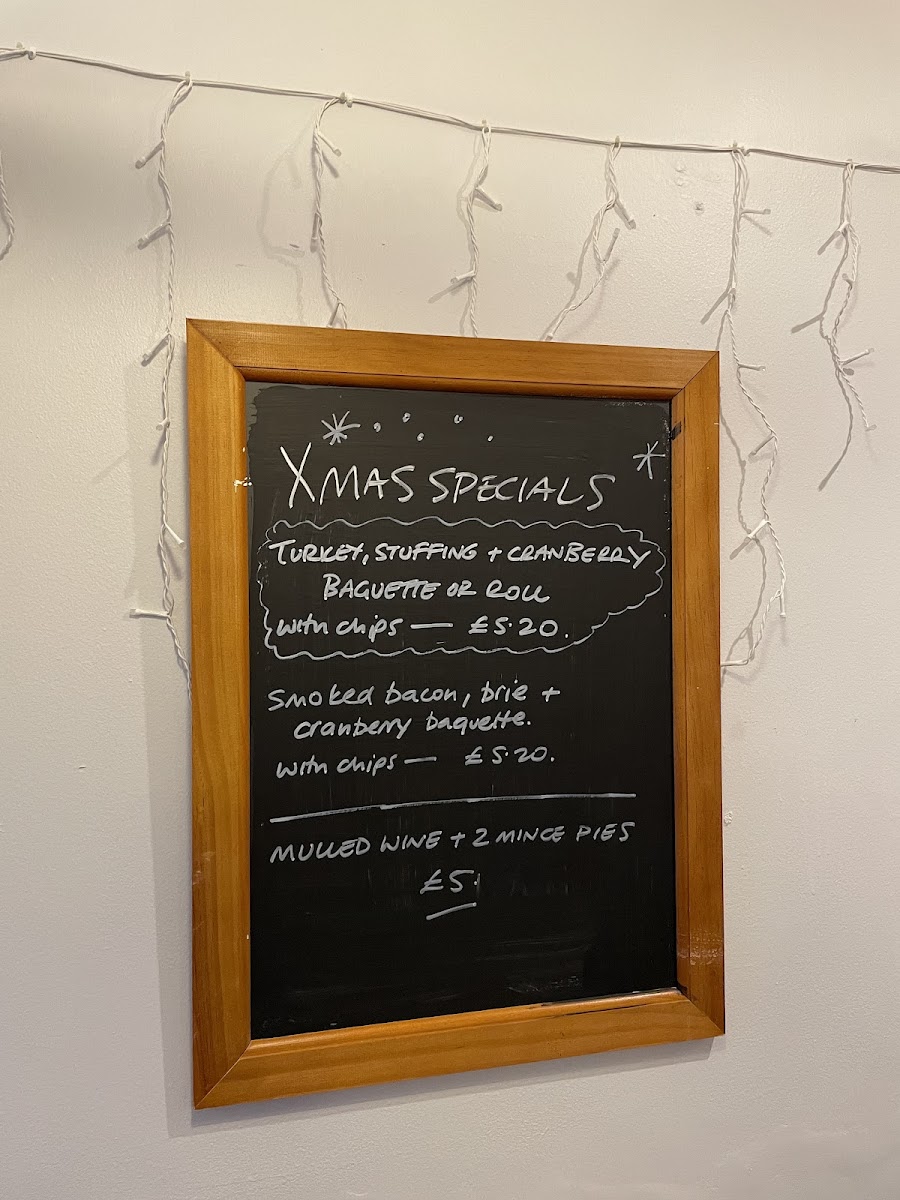 XMAS SPECIALS
TURKEY, STUFFING + CRANBERRY
BAGUETTE OR ROLL
with chips — £5.20.
Smoked bacon, brie +
cranberry baguette.
with chips — £5.20.
MULLED WINE + 2 MINCE PIES
£5.